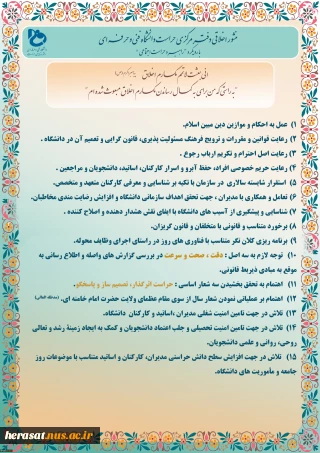 منشور اخلاقی دفتر مرکزی حراست دانشگاه فنی و حرفه ای
انی بعثت لاتمم مکارم الاخلاق
"به راستی که من برای به کمال رساندن مکارم اخلاق مبعوث شده ام"
۱) عمل به احکام و موازین دین مبین اسلام.
۲) رعایت قوانین و مقررات و ترویج فرهنگ مسئولیت پذیری، قانون گرایی و تعمیم آن در دانشگاه .
۳) رعایت اصل احترام و تکریم ارباب رجوع .
۴) رعایت حریم خصوصی افراد، حفظ آبرو و اسرار کارکنان، اساتید، دانشجویان و مراجعین .
۵) استقرار شایسته سالاری در سازمان با تکیه بر شناسایی و معرفی کارکنان متعهد و متخصص.
۶) تعامل و همکاری با مدیران ، جهت تحقق اهداف سازمانی دانشگاه و افزایش رضایت مندی مخاطبان.
۷) شناسایی و پیشگیری از آسیب های دانشگاه با ایفای نقش هشدار دهنده و اصلاح کننده .
۸) برخورد متناسب و قانونی با متخلفان و قانون گریزان.
۹) برنامه ریزی کلان نگر متناسب با فناوری های روز در راستای اجرای وظایف محوله.
۱۰) توجه لازم به سه اصل : دقت ، صحت و سرعت در بررسی گزارش های واصله و اطلاع رسانی به
موقع به مبادی ذیربط قانونی.
۱۱) اهتمام به تحقق بخشیدن سه شعار اساسی : حراست اثرگذار، تصمیم ساز و پاسخگو.
۱۲) اهتمام بر عملیاتی نمودن شعار سال از سوی مقام عظمای ولایت حضرت امام خامنه ای.
۱۳) تلاش در جهت تامین امنیت شغلی مدیران ،اساتید و کارکنان دانشگاه.
۱۴) تلاش در جهت تامین امنیت تحصیلی و جلب اعتماد دانشجویان و کمک به ایجاد زمینهٔ رشد و تعالی
روحی، روانی و علمی دانشجویان.
۱۵) تلاش در جهت افزایش سطح دانش حراستی مدیران، کارکنان و اساتید متناسب با موضوعات روز
جامعه و مأموریت های دانشگاه.
herasat.nus.ac.ir